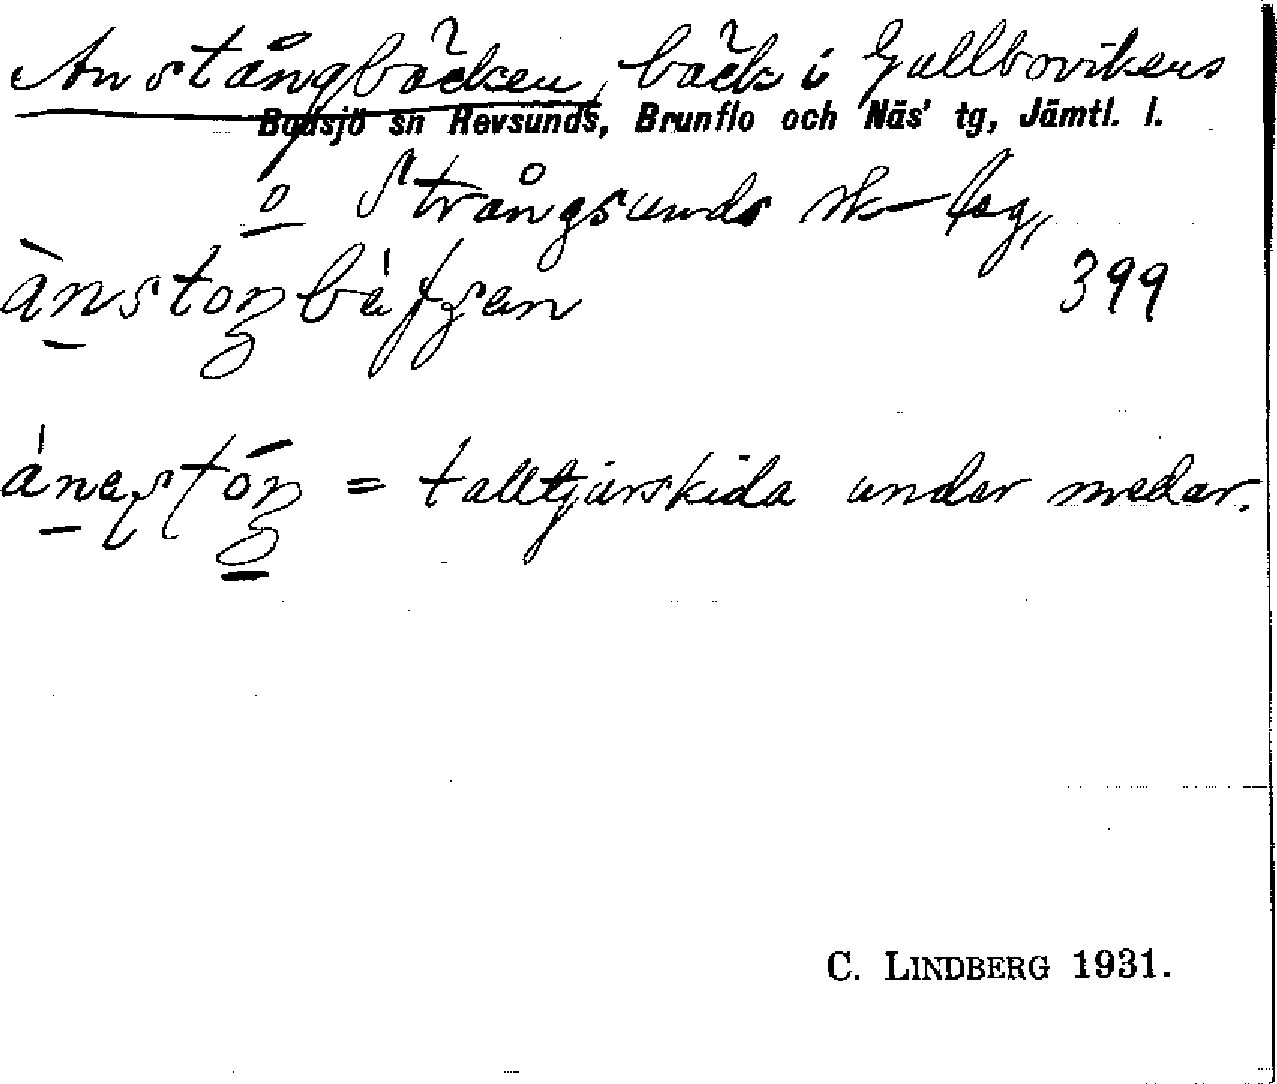 Anstångbäcken, bäck i Gallbovikens
Bodsjö sn Revsunds, Brunflo och Näs' tg, Jämtl. l.
o Strångsunds sk-lag,
399
= talltjurskida under medar.
C. LINDBERG 1931.